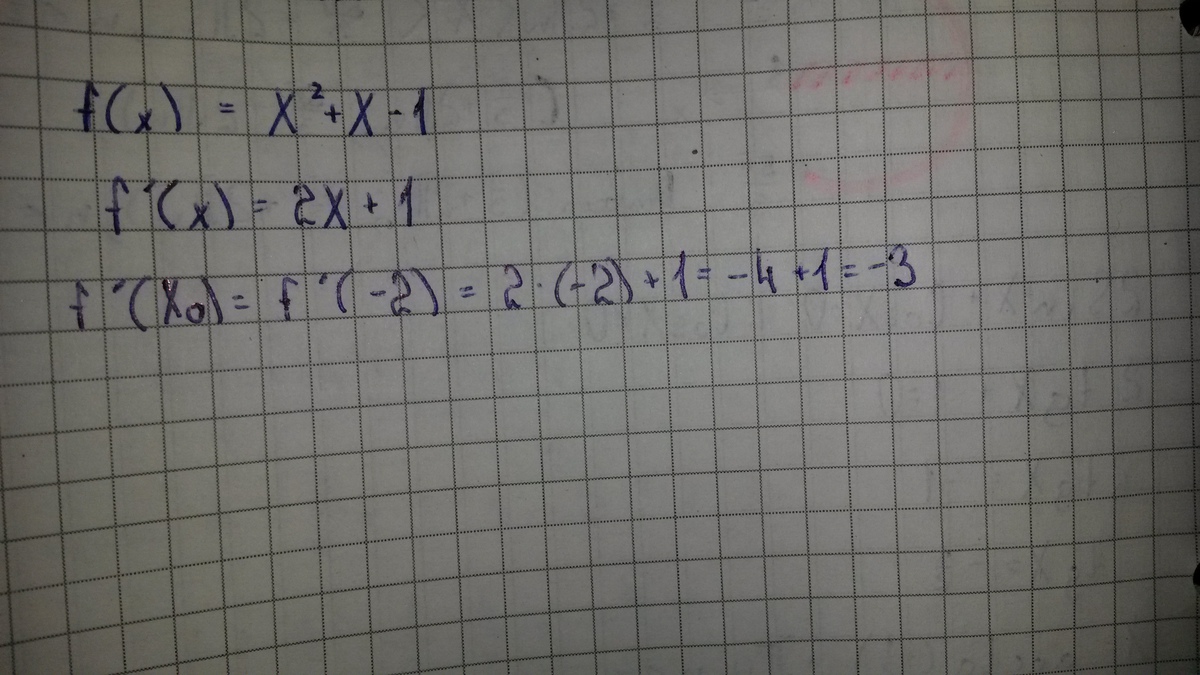 f(x) = x²+x-1
f'(x) = 2x + 1
f'(x₀) = f'(-2) = 2·(-2)+1 = -4+1 = -3